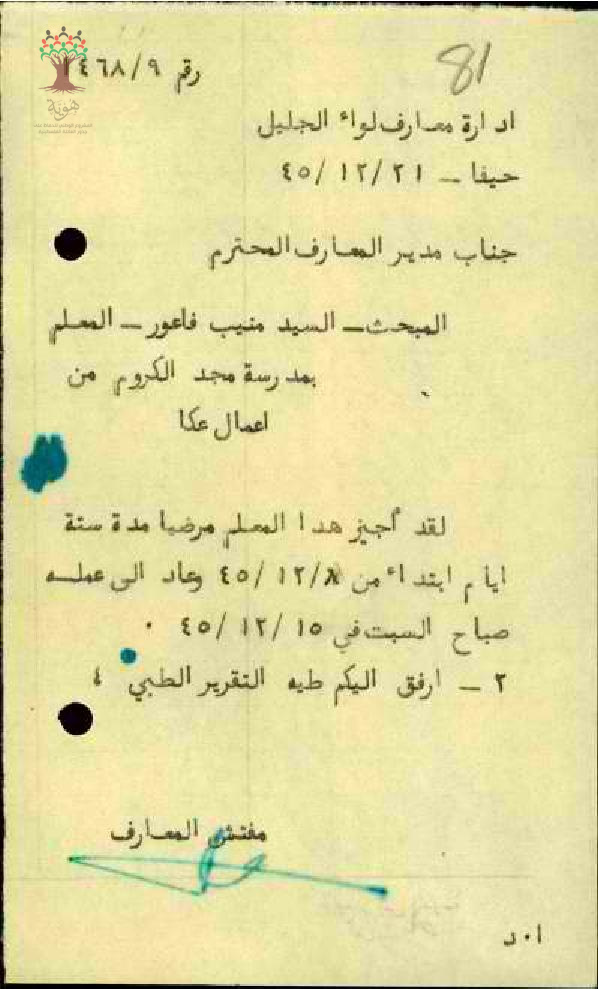 81
رقم ٤٦٨/٩
هوية
ادارة معارف لواء الجليل
حيفا – ٤٥/١٢/٢١
جناب مدير المعارف المحترم
المبحث – السيد منيب فاعور – المعلم
بمدرسة مجد الكروم من
اعمال عكا
لقد أجيز هدا المعلم مرضيا مدة ستة
ايام ابتداء من ٤٥/١٢/٨ وعاد الى عمله
صباح السبت في ٤٥/١٢/١٥ ٠
٢ – ارفق اليكم طيه التقرير الطبي ٤
مفتش المعارف
ا٠د